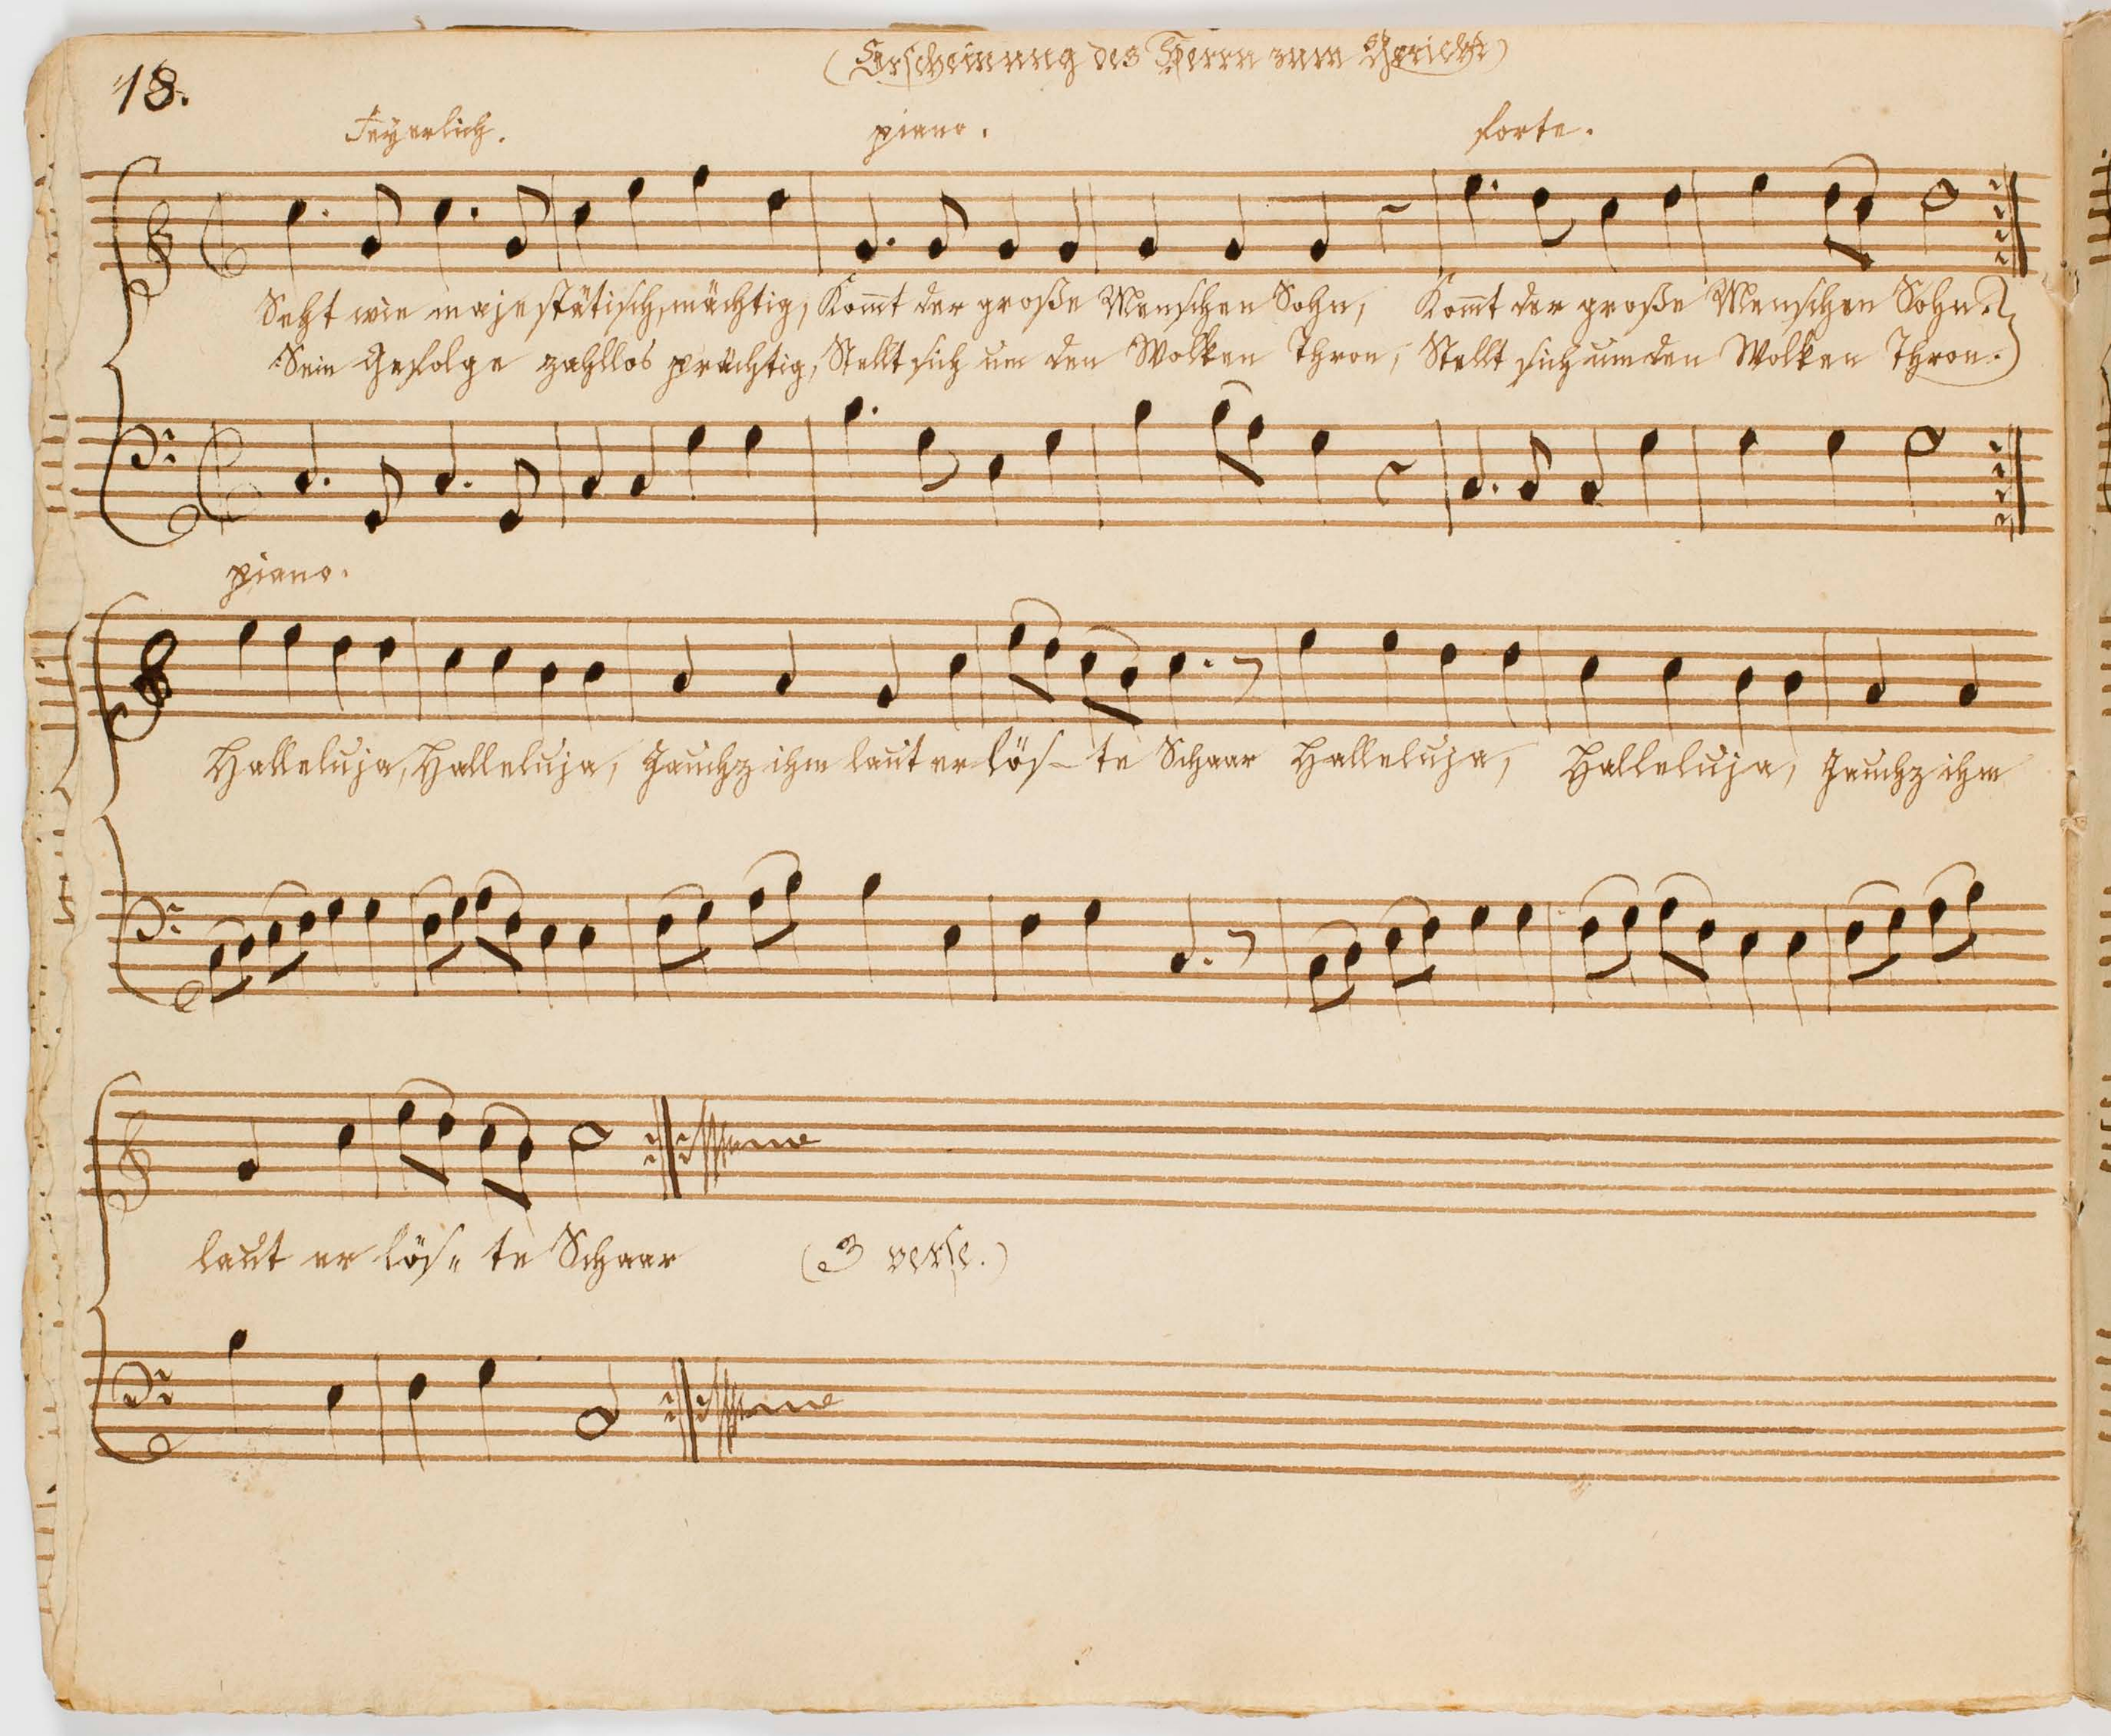 (Erscheinung des Herrn zum Gericht)
18.
Feyerlich. piano. forte.
Seht wie majestätisch, mächtig, Kom̄t der große Menschen Sohn, Kom̄t der große Menschen Sohn.
Sein Gefolge zahllos prächtig, Stellt sich um den Wolken Thron, Stellt sich um den Wolken Thron.
piano.
Halleluja, Halleluja, Jauchz ihm laut er lös- te Schaar Halleluja, Halleluja, Jauchz ihm
laut er lös„ te Schaar (3 verse.)